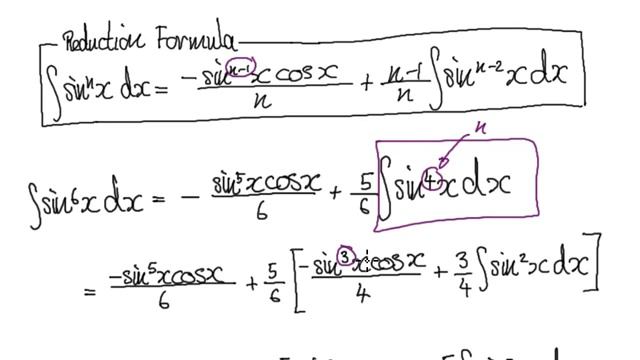 Reduction Formula
∫sinⁿx dx = -sinⁿ⁻¹x cosx / n + n-1 / n ∫sinⁿ⁻²x dx
n
∫sin⁶x dx = - sin⁵x cosx / 6 + 5/6 ∫sin⁴x dx
= -sin⁵x cosx / 6 + 5/6 [-sin³x cosx / 4 + 3/4 ∫sin²x dx]